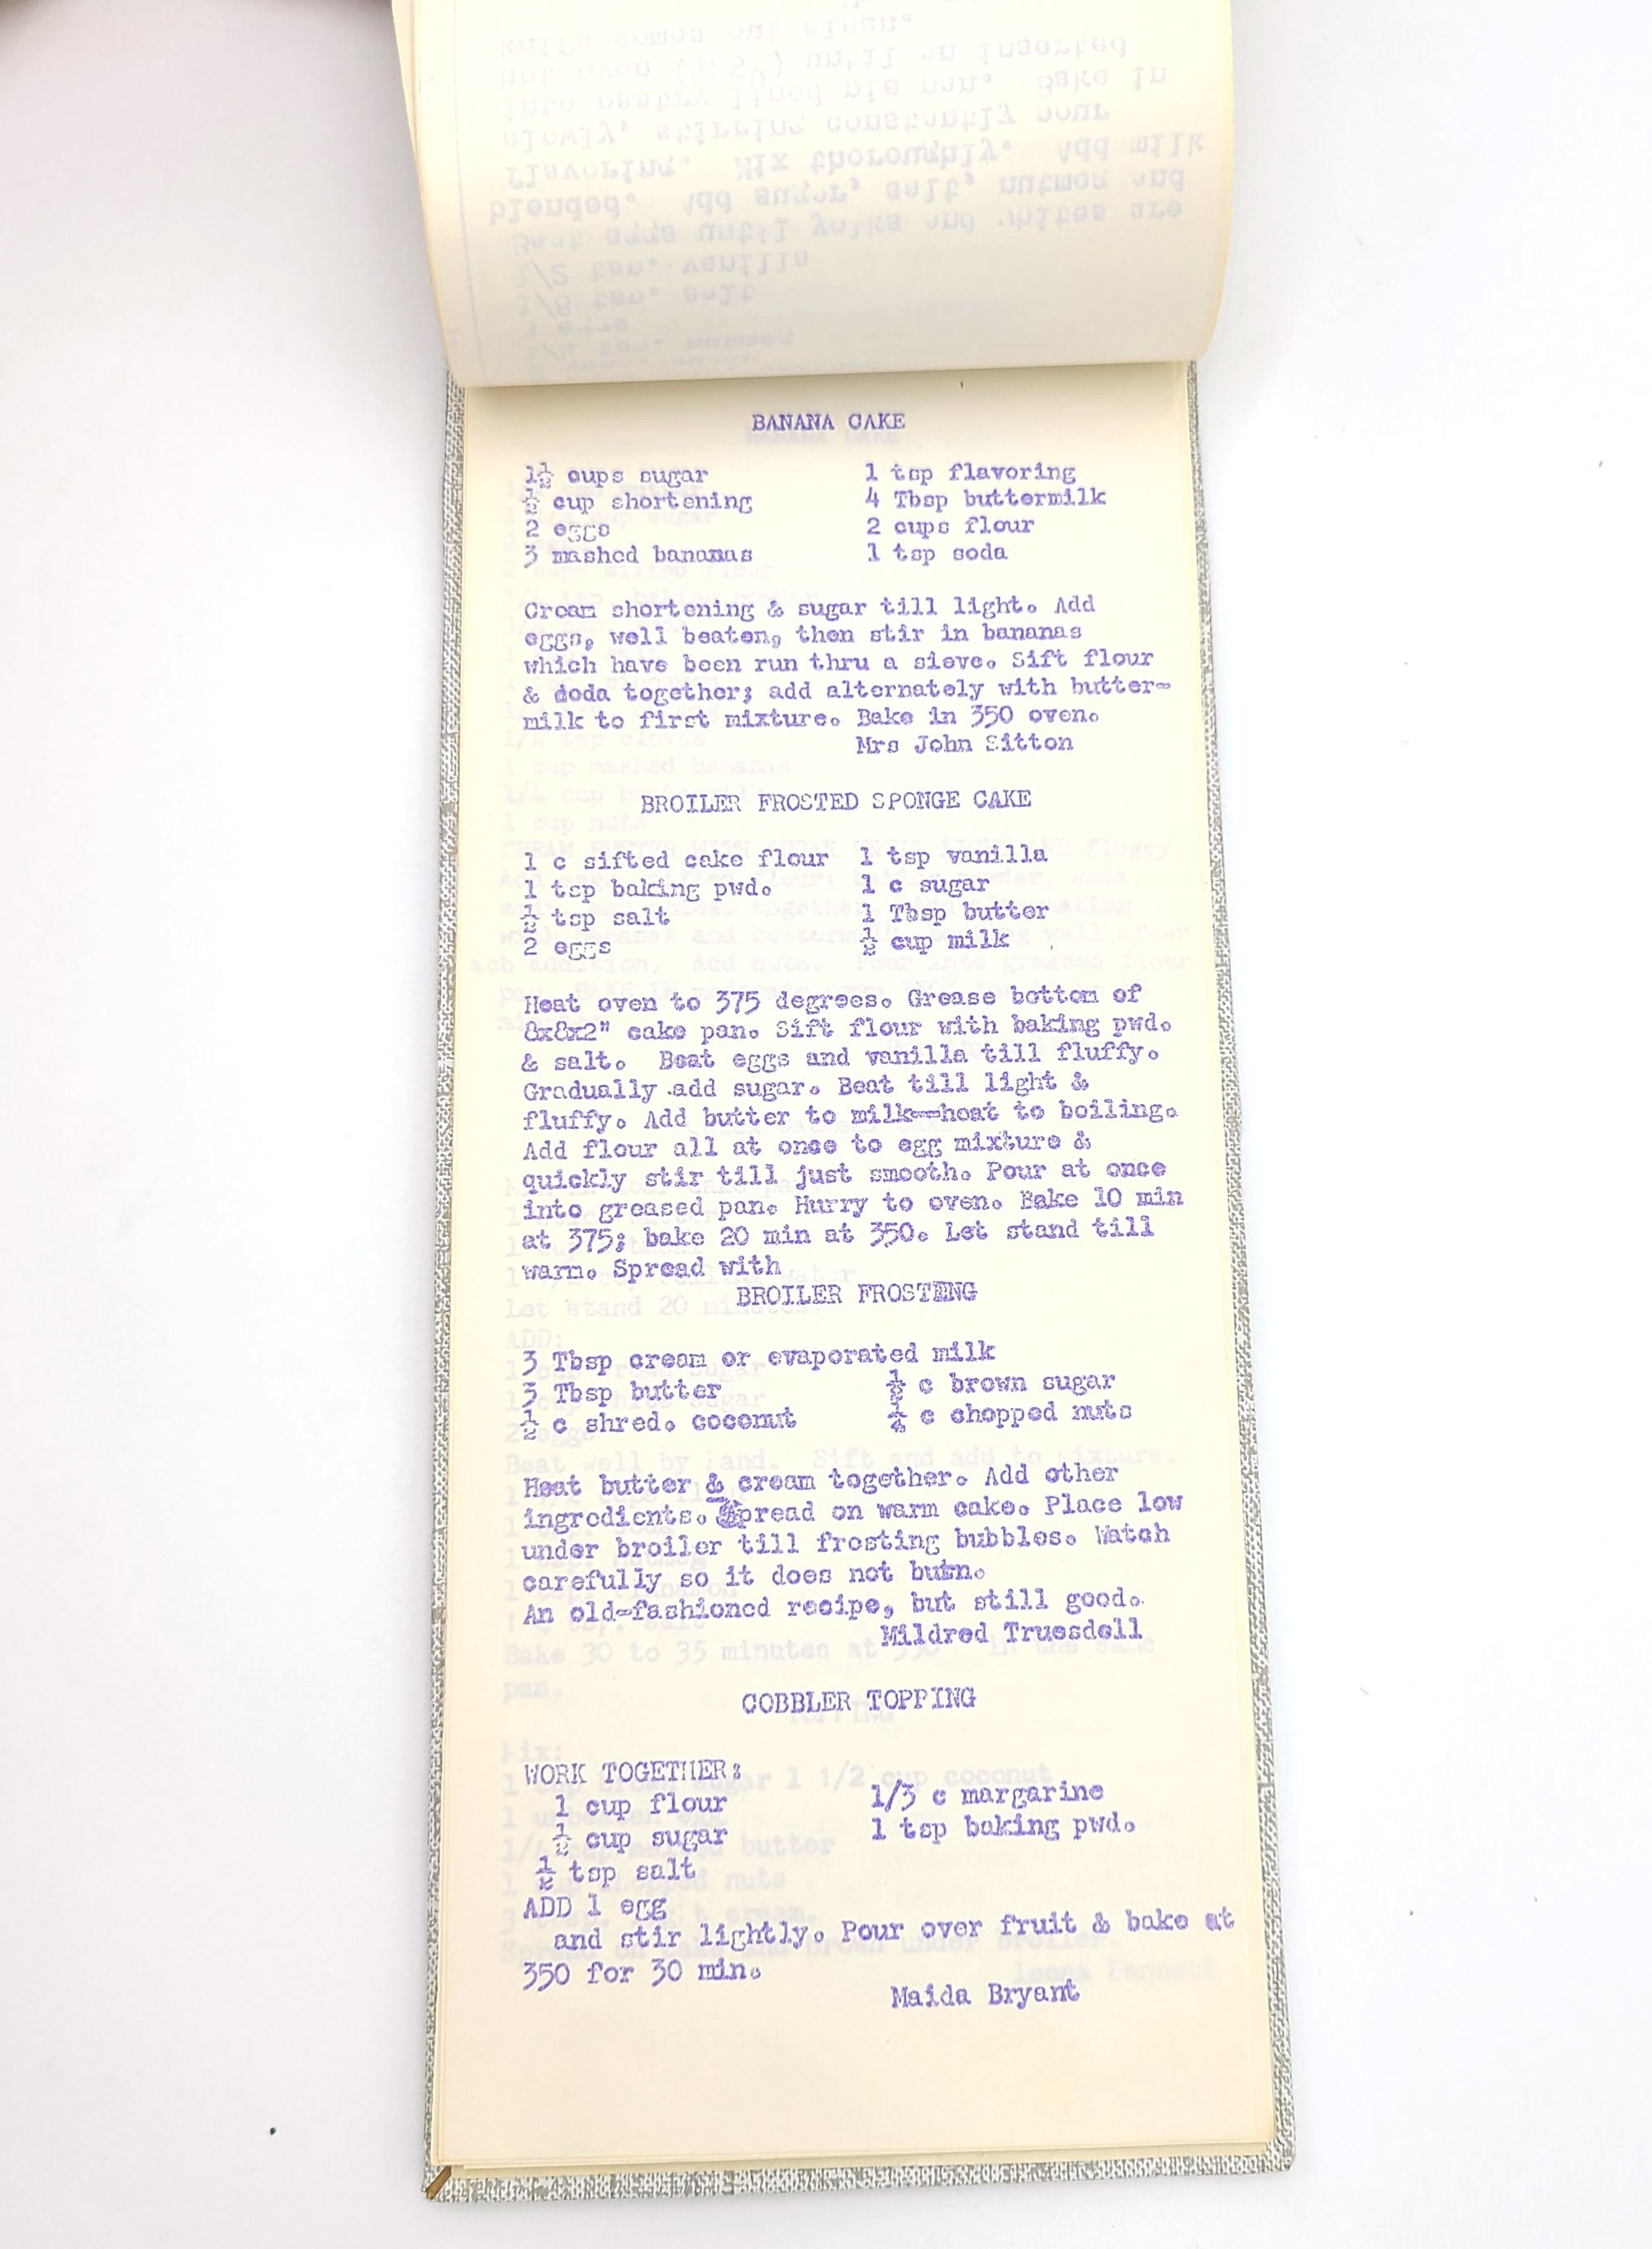 BANANA CAKE
1½ cups sugar 1 tsp flavoring
½ cup shortening 4 Tbsp buttermilk
2 eggs 2 cups flour
3 mashed bananas 1 tsp soda
Cream shortening & sugar till light. Add
eggs, well beaten, then stir in bananas
which have been run thru a sieve. Sift flour
& doda together; add alternately with butter-
milk to first mixture. Bake in 350 oven.
Mrs John Sitton
BROILER FROSTED SPONGE CAKE
1 c sifted cake flour 1 tsp vanilla
1 tsp baking pwd. 1 c sugar
½ tsp salt 1 Tbsp butter
2 eggs ½ cup milk
Heat oven to 375 degrees. Grease bottom of
8x8x2" cake pan. Sift flour with baking pwd.
& salt. Beat eggs and vanilla till fluffy.
Gradually add sugar. Beat till light &
fluffy. Add butter to milk--heat to boiling.
Add flour all at once to egg mixture &
quickly stir till just smooth. Pour at once
into greased pan. Hurry to oven. Bake 10 min
at 375; bake 20 min at 350. Let stand till
warm. Spread with
BROILER FROSTING
3 Tbsp cream or evaporated milk
3 Tbsp butter ½ c brown sugar
½ c shred. coconut ¼ c chopped nuts
Heat butter & cream together. Add other
ingredients. Spread on warm cake. Place low
under broiler till frosting bubbles. Watch
carefully so it does not burn.
An old-fashioned recipe, but still good.
Mildred Truesdell
COBBLER TOPPING
WORK TOGETHER:
1 cup flour 1/3 c margarine
½ cup sugar 1 tsp baking pwd.
½ tsp salt
ADD 1 egg
and stir lightly. Pour over fruit & bake at
350 for 30 min.
Maida Bryant